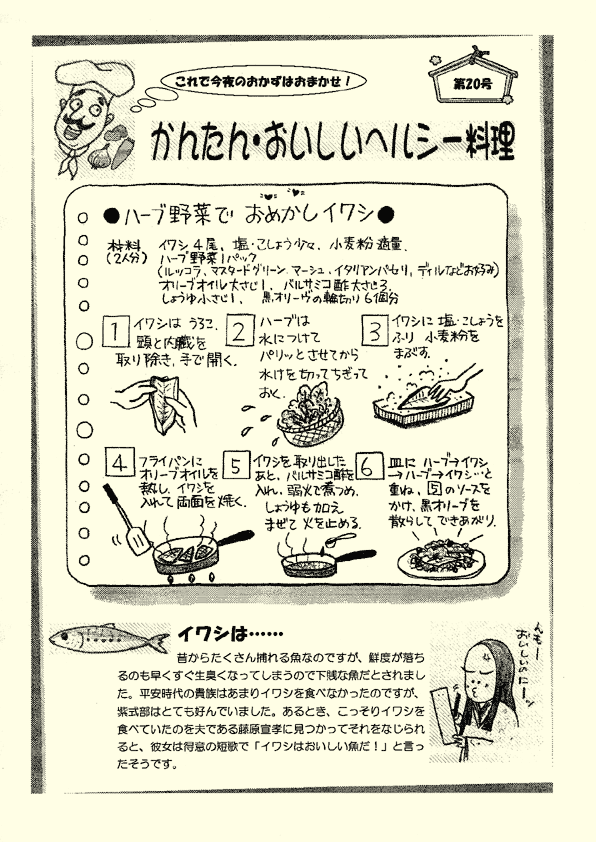 これで今夜のおかずはおまかせ！
第20号
かんたん・おいしいヘルシー料理
●ハーブ野菜で おめかしイワシ●
材料 イワシ4尾、塩・こしょう少々、小麦粉適量、
(2人分) ハーブ野菜1パック
(ルッコラ、マスタードグリーン、マーシュ、イタリアンパセリ、ディルなどお好み)
オリーブオイル大さじ1、バルサミコ酢大さじ3、
しょうゆ小さじ1、黒オリーヴの輪切り6個分
1 イワシは うろこ、
頭と内臓を
取り除き、手で開く。
2 ハーブは
水につけて
パリッとさせてから
水けを切ってちぎって
おく。
3 イワシに塩・こしょうを
ふり 小麦粉を
まぶす。
4 フライパンに
オリーブオイルを
熱し、イワシを
入れて両面を焼く。
5 イワシを取り出した
あと、バルサミコ酢を
入れ、弱火で煮つめ、
しょうゆも加え
まぜて火を止める。
6 皿に ハーブ→イワシ
→ハーブ→イワシ…と
重ね、5のソースを
かけ、黒オリーブを
散らして できあがり。
イワシは……
昔からたくさん捕れる魚なのですが、鮮度が落ち
るのも早くすぐ生臭くなってしまうので下賎な魚だとされまし
た。平安時代の貴族はあまりイワシを食べなかったのですが、
紫式部はとても好んでいました。あるとき、こっそりイワシを
食べていたのを夫である藤原宣孝に見つかってそれをなじられ
ると、彼女は得意の短歌で「イワシはおいしい魚だ！」と言っ
たそうです。
んもー
おいしいのにーッ